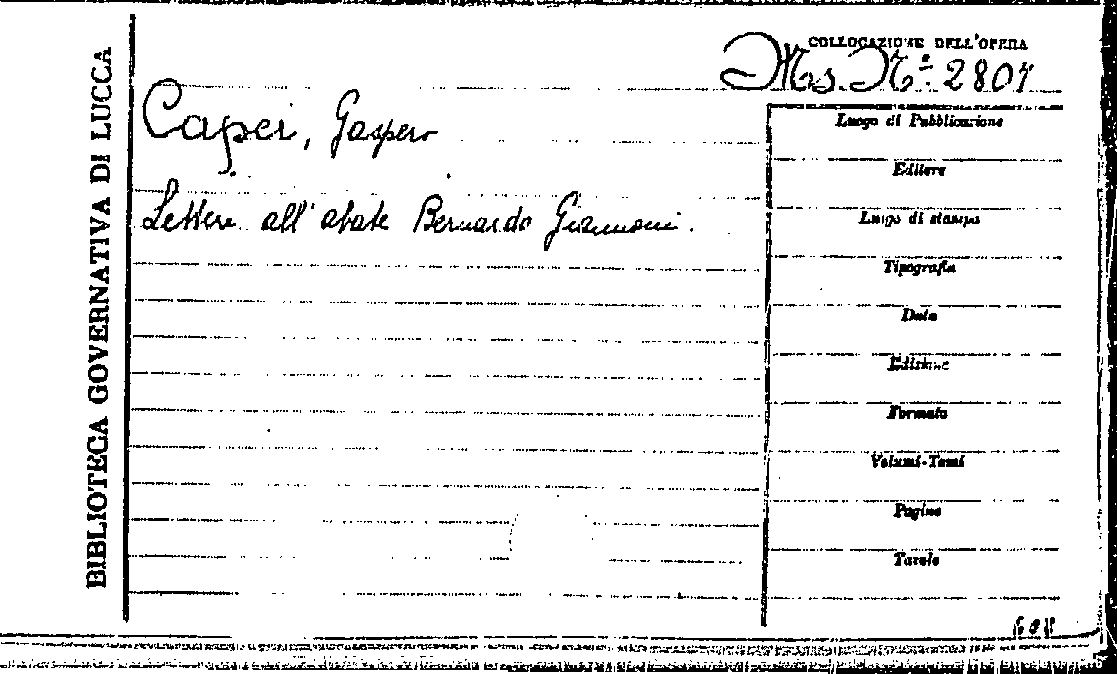 BIBLIOTECA GOVERNATIVA DI LUCCA
COLLOCAZIONE DELL'OPERA
Ms. Nº 2807
Capei, Gaspero
Lettere all'abate Bernardo Giannoni.
Luogo di Pubblicazione
Editore
Luogo di stampa
Tipografia
Data
Edizione
Formato
Volumi-Tomi
Pagine
Tavole